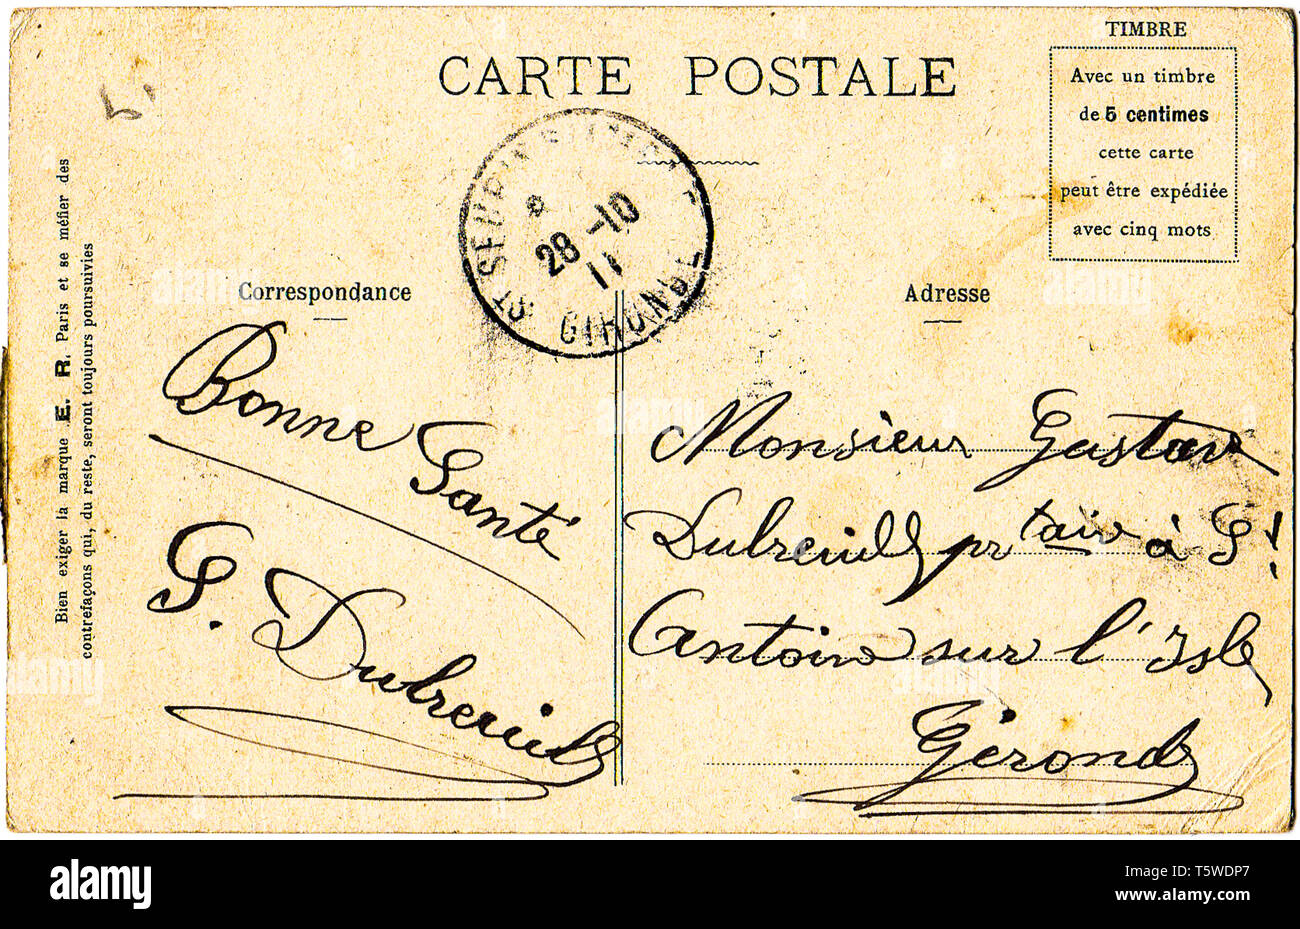 CARTE POSTALE
TIMBRE
Avec un timbre
de 5 centimes
cette carte
peut être expédiée
avec cinq mots
Bien exiger la marque E. R. Paris et se méfier des
contrefaçons qui, du reste, seront toujours poursuivies
ST SEURIN
28-10
11
GIRONDE
Correspondance
Bonne
Santé
G. Dubreuilh
Adresse
Monsieur Gustave
Dubreuilh pr taire à St
Antoine sur l'Isle
Géronde
alamy
Image ID: T5WDP7
www.alamy.com